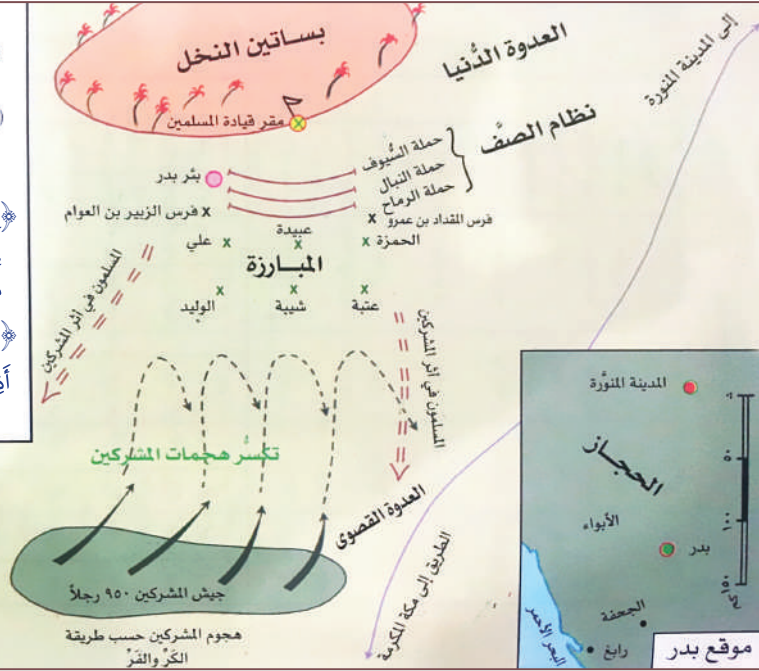 بساتين النخل
العدوة الدُّنيا
إلى المدينة المنورة
مقر قيادة المسلمين
نظام الصفَّ
حملة السُّيوف
حملة النبال
حملة الرماح
بئر بدر
فرس الزبير بن العوام
فرس المقداد بن عمرو
علي
عبيدة
الحمزة
المبارزة
الوليد
شيبة
عتبة
المسلمون في اثر المشركين
المسلمون في اثر المشركين
تكسُّر هجمات المشركين
العدوة القصوى
جيش المشركين ٩٥٠ رجلاً
هجوم المشركين حسب طريقة
الكَرِّ والفَرِّ
الطريق إلى مكة المكرمة
المدينة المنوَّرة
الحجاز
الأبواء
بدر
الجحفة
رابغ
البحر الأحمر
٥٠
١٠٠
١٥٠
موقع بدر